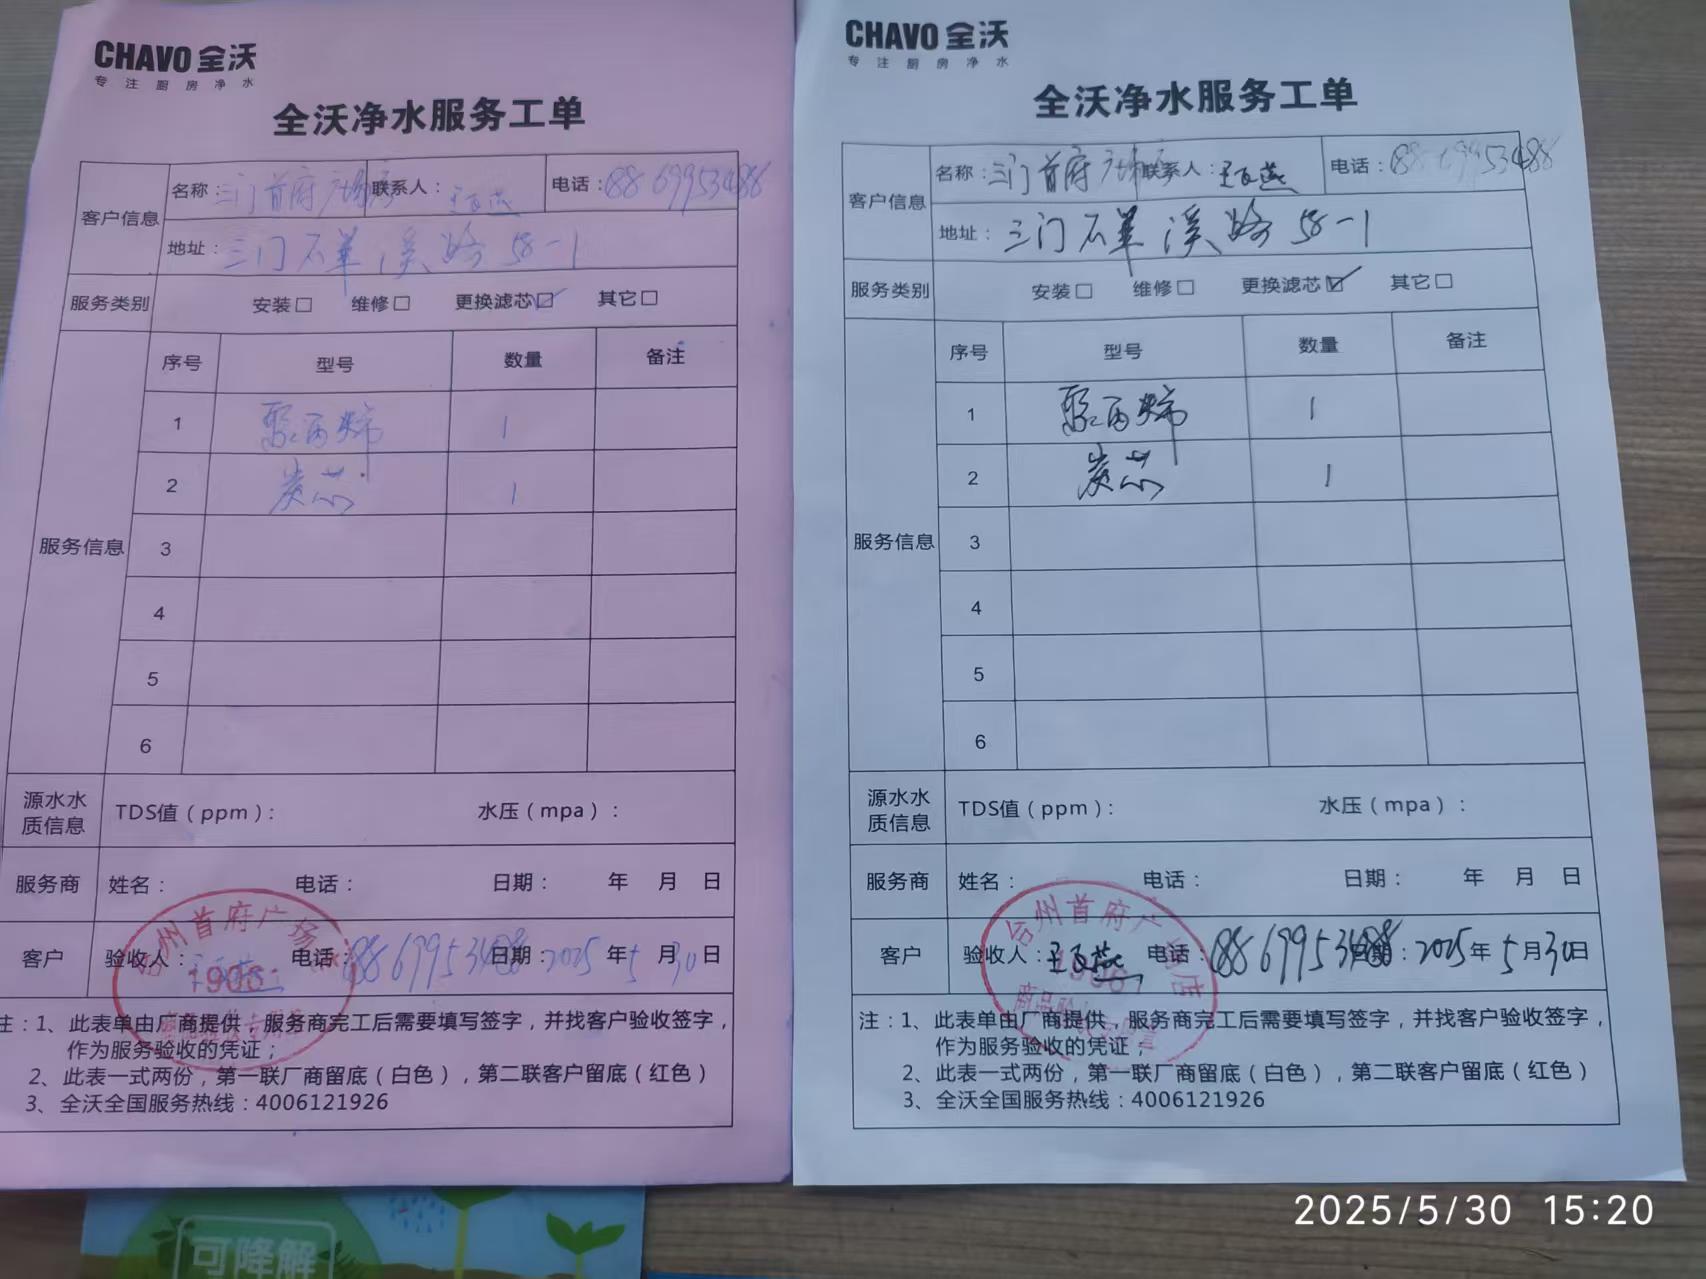 CHAVO全沃
专注厨房净水
全沃净水服务工单
客户信息
名称：三门首府广场店 联系人：王 燕 电话：
地址：三门石 溪路58-1
服务类别 安装□ 维修□ 更换滤芯☑ 其它□
服务信息
序号 型号 数量 备注
1 聚丙烯 1
2 炭芯 1
3
4
5
6
源水水质信息 TDS值（ppm）： 水压（mpa）：
服务商 姓名： 电话： 日期： 年 月 日
客户 验收人： 电话： 日期：2025年5月30日
台州首府广场店
1906
注：1、此表单由厂商提供，服务商完工后需要填写签字，并找客户验收签字，
作为服务验收的凭证；
2、此表一式两份，第一联厂商留底（白色），第二联客户留底（红色）
3、全沃全国服务热线：4006121926
CHAVO全沃
专注厨房净水
全沃净水服务工单
客户信息
名称：三门首府广场店 联系人：王 燕 电话：
地址：三门石 溪路58-1
服务类别 安装□ 维修□ 更换滤芯☑ 其它□
服务信息
序号 型号 数量 备注
1 聚丙烯 1
2 炭芯 1
3
4
5
6
源水水质信息 TDS值（ppm）： 水压（mpa）：
服务商 姓名： 电话： 日期： 年 月 日
客户 验收人：王 燕 电话： 日期：2025年5月30日
台州首府广场店
注：1、此表单由厂商提供，服务商完工后需要填写签字，并找客户验收签字，
作为服务验收的凭证；
2、此表一式两份，第一联厂商留底（白色），第二联客户留底（红色）
3、全沃全国服务热线：4006121926
可降解
2025/5/30 15:20